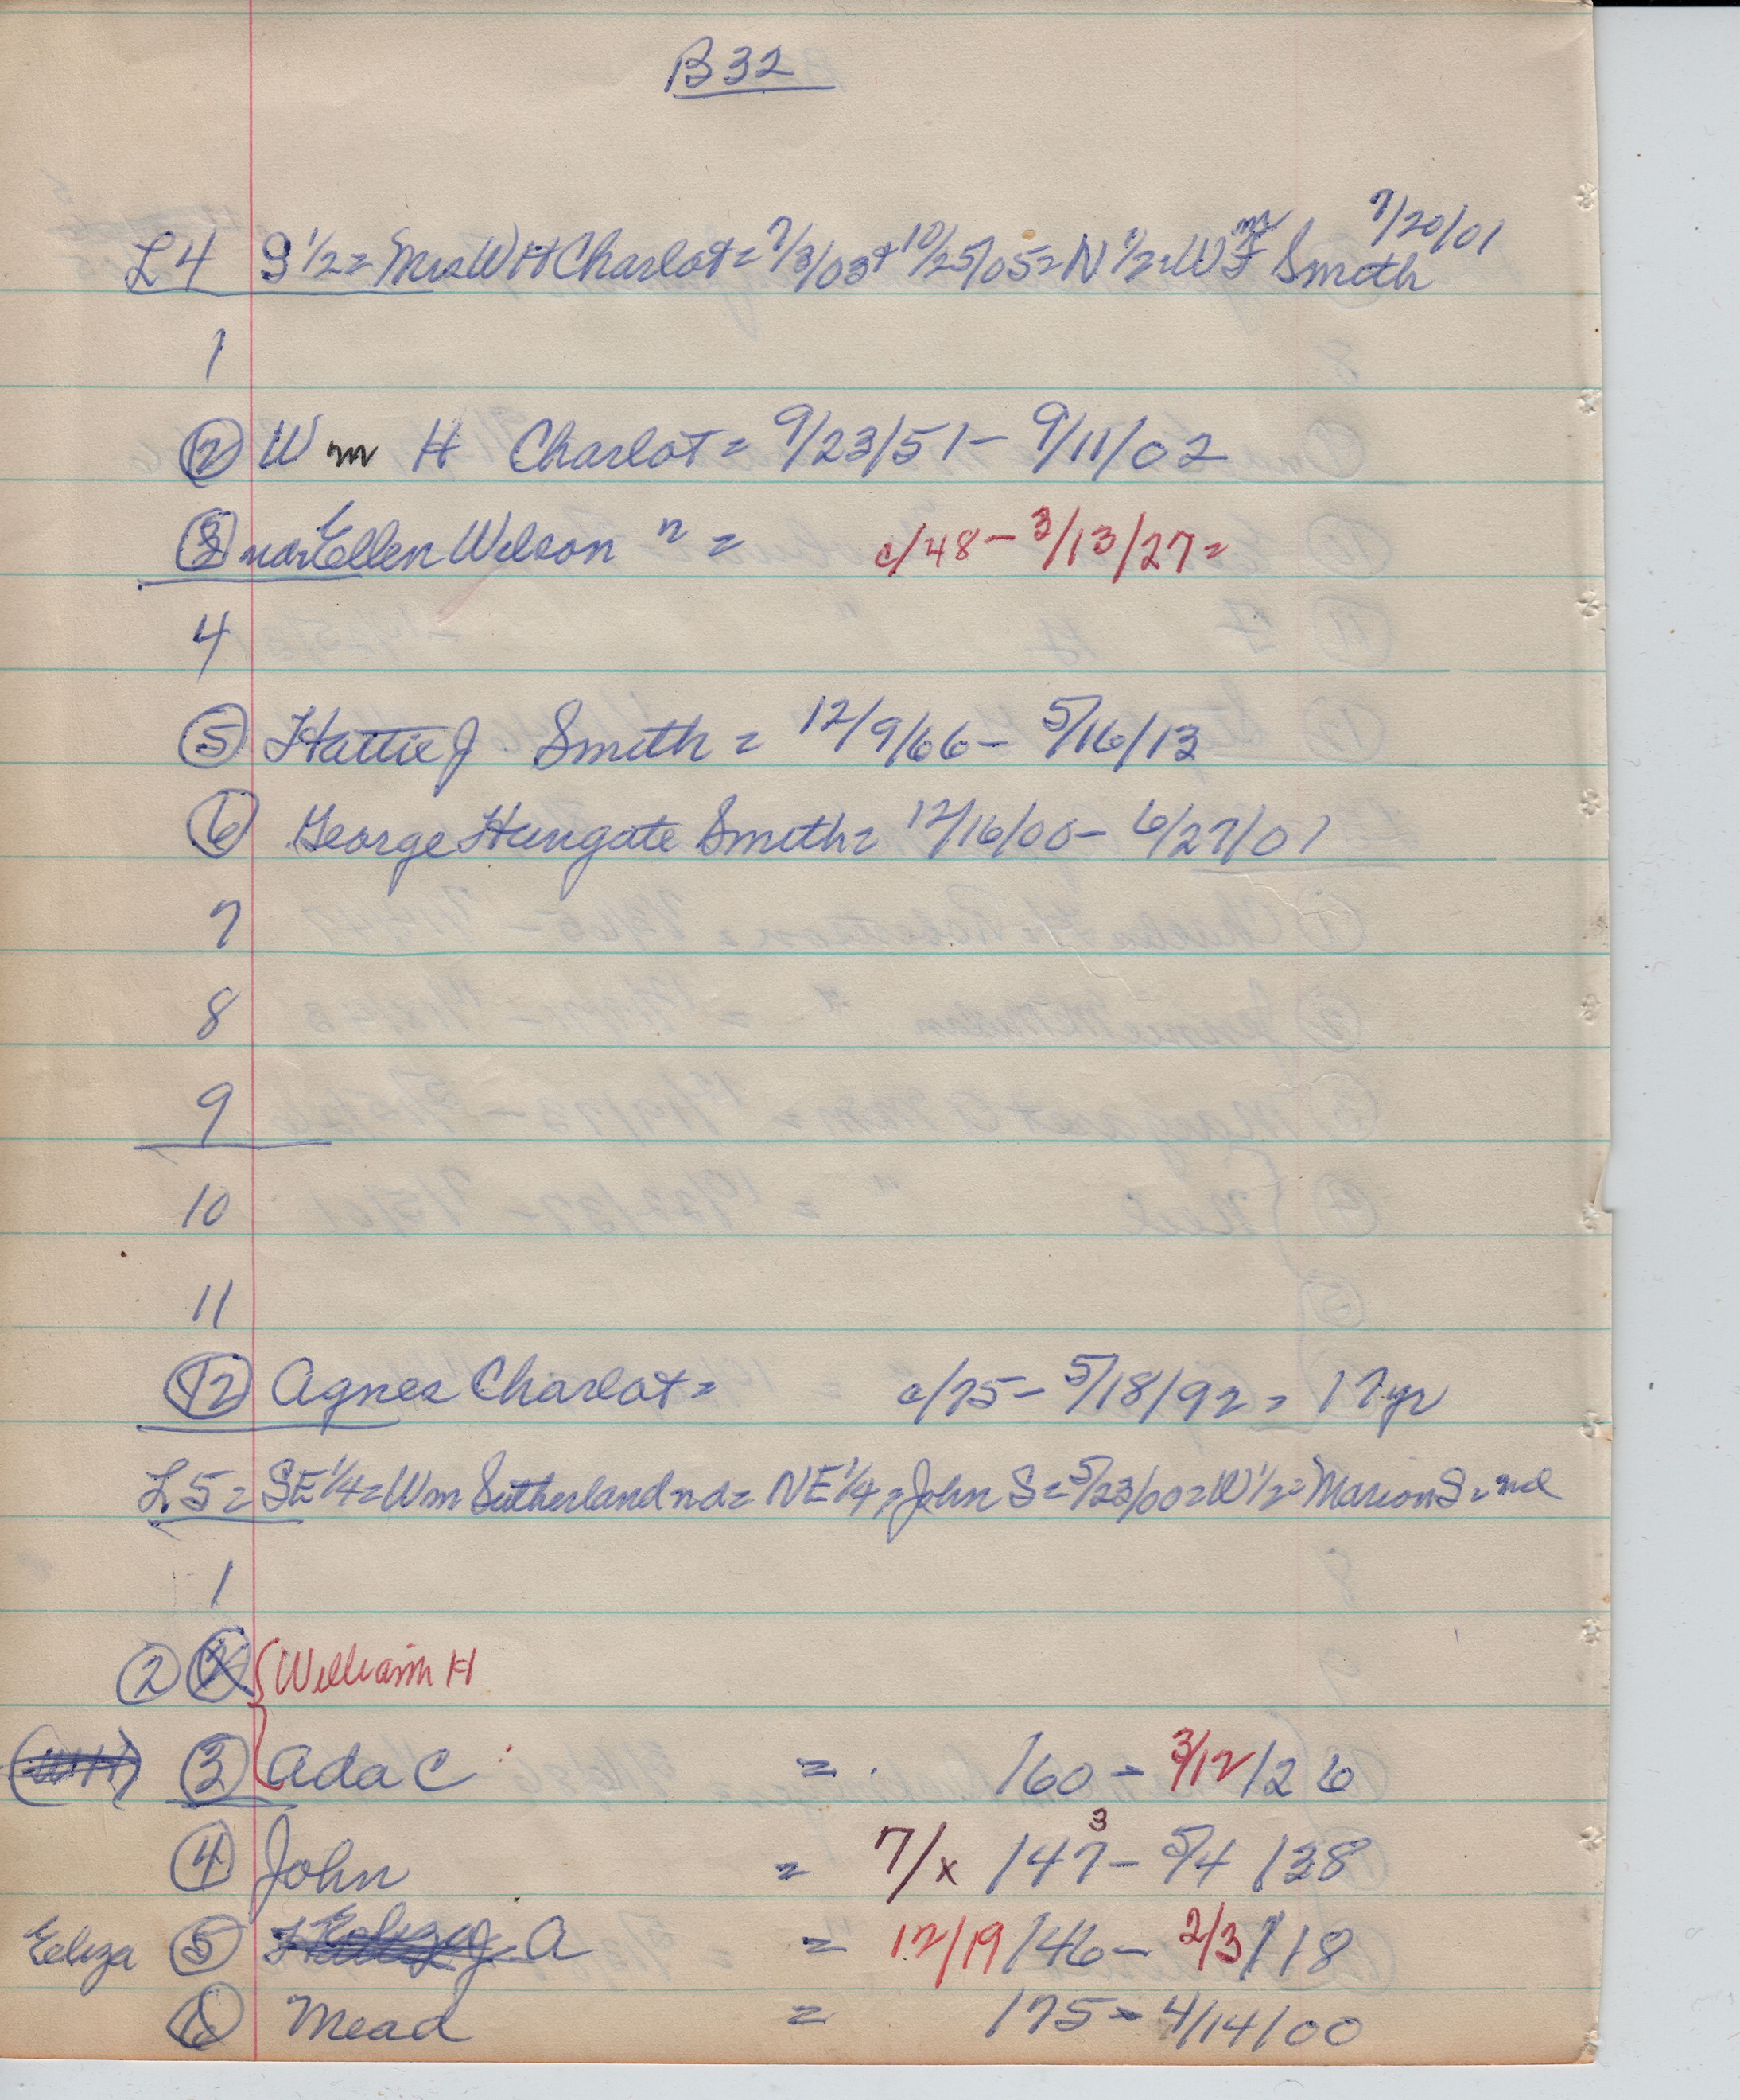 B 32
7/20/01
L4 S 1/2 = Mrs W H Charlot = 7/3/03 + 10/25/05 = N 1/2 = Wm F Smith
1
2 Wm H Charlot = 9/23/51 - 9/11/02
3 Ellen Wilson " = c/48 - 3/13/27 =
4
5 Hattie J. Smith = 12/9/66 - 5/16/13
6 George Hungate Smith = 12/16/00 - 6/27/01
7
8
9
10
11
12 Agnes Charlot = c/75 - 5/18/92 = 17 yr
L5 = SE 1/4 = Wm Sutherland nd = NE 1/4 = John S = 5/23/00 = W 1/2 = Marion S = nd
1
2 William H
3 Ada C = /60 - 3/12/26
3
4 John = 7/x /47 - 5/4 /38
Eeliza 5 A = 12/19/46 - 2/3/18
6 Mead = /75 - 4/14/00